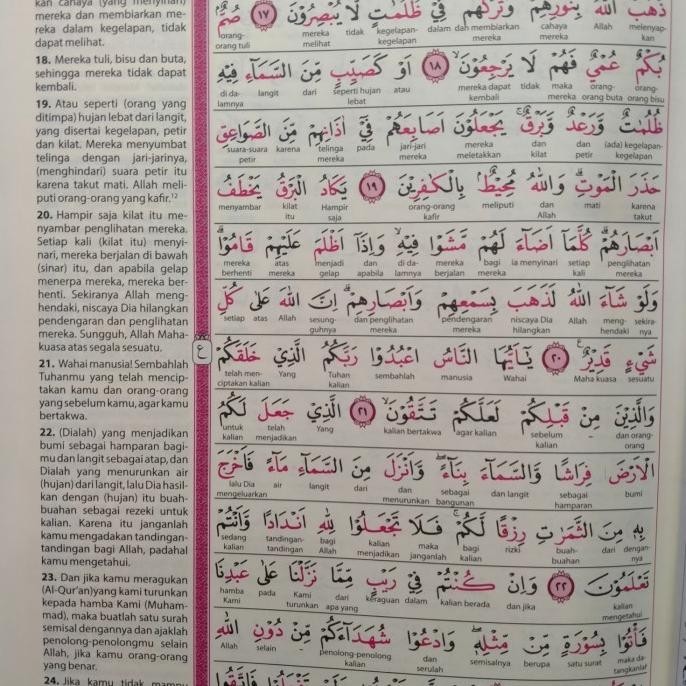 kan cahaya (yang menyinari)
mereka dan membiarkan me-
reka dalam kegelapan, tidak
dapat melihat.
18. Mereka tuli, bisu dan buta,
sehingga mereka tidak dapat
kembali.
19. Atau seperti (orang yang
ditimpa) hujan lebat dari langit,
yang disertai kegelapan, petir
dan kilat. Mereka menyumbat
telinga dengan jari-jarinya,
(menghindari) suara petir itu
karena takut mati. Allah meli-
puti orang-orang yang kafir.¹²
20. Hampir saja kilat itu me-
nyambar penglihatan mereka.
Setiap kali (kilat itu) menyi-
nari, mereka berjalan di bawah
(sinar) itu, dan apabila gelap
menerpa mereka, mereka ber-
henti. Sekiranya Allah meng-
hendaki, niscaya Dia hilangkan
pendengaran dan penglihatan
mereka. Sungguh, Allah Maha-
kuasa atas segala sesuatu.
21. Wahai manusia! Sembahlah
Tuhanmu yang telah mencip-
takan kamu dan orang-orang
yang sebelum kamu, agar kamu
bertakwa.
22. (Dialah) yang menjadikan
bumi sebagai hamparan bagi-
mu dan langit sebagai atap, dan
Dialah yang menurunkan air
(hujan) dari langit, lalu Dia hasil-
kan dengan (hujan) itu buah-
buahan sebagai rezeki untuk
kalian. Karena itu janganlah
kamu mengadakan tandingan-
tandingan bagi Allah, padahal
kamu mengetahui.
23. Dan jika kamu meragukan
(Al-Qur'an)yang kami turunkan
kepada hamba Kami (Muham-
mad), maka buatlah satu surah
semisal dengannya dan ajaklah
penolong-penolongmu selain
Allah, jika kamu orang-orang
yang benar.
24. Jika kamu tidak mampu
ذَهَبَ اللّٰهُ بِنُوْرِهِمْ وَتَرَكَهُمْ فِيْ ظُلُمٰتٍ لَّا يُبْصِرُوْنَ ١٧ صُمٌّۢ
orang- mereka tidak kegelapan- dalam dan membiarkan cahaya Allah melenyap-
orang tuli melihat kegelapan mereka mereka kan
بُكْمٌ عُمْيٌ فَهُمْ لَا يَرْجِعُوْنَۙ ١٨ اَوْ كَصَيِّبٍ مِّنَ السَّمَاۤءِ فِيْهِ
di da- langit dari seperti hujan atau mereka dapat tidak maka orang- orang-
lamnya lebat kembali mereka orang buta orang bisu
ظُلُمٰتٌ وَّرَعْدٌ وَّبَرْقٌۚ يَجْعَلُوْنَ اَصَابِعَهُمْ فِيْٓ اٰذَانِهِمْ مِّنَ الصَّوَاعِقِ
suara-suara karena telinga pada jari-jari mereka dan dan (ada) kegelapan-
petir mereka mereka meletakkan kilat petir kegelapan
حَذَرَ الْمَوْتِۗ وَاللّٰهُ مُحِيْطٌۢ بِالْكٰفِرِيْنَ ١٩ يَكَادُ الْبَرْقُ يَخْطَفُ
menyambar kilat Hampir orang-orang meliputi dan mati karena
itu saja kafir Allah takut
اَبْصَارَهُمْۗ كُلَّمَآ اَضَاۤءَ لَهُمْ مَّشَوْا فِيْهِۙ وَاِذَآ اَظْلَمَ عَلَيْهِمْ قَامُوْاۗ
mereka atas menjadi dan di da- mereka bagi ia menyinari setiap penglihatan
berhenti mereka gelap apabila lamnya berjalan mereka kali mereka
وَلَوْ شَاۤءَ اللّٰهُ لَذَهَبَ بِسَمْعِهِمْ وَاَبْصَارِهِمْۗ اِنَّ اللّٰهَ عَلٰى كُلِّ
setiap atas Allah sesung- dan penglihatan pendengaran niscaya Dia Allah meng- sekira-
guhnya mereka mereka hilangkan hendaki nya
شَيْءٍ قَدِيْرٌࣖ ٢٠ يٰٓاَيُّهَا النَّاسُ اعْبُدُوْا رَبَّكُمُ الَّذِيْ خَلَقَكُمْ
ع
telah men- Yang Tuhan sembahlah manusia Wahai Maha kuasa sesuatu
ciptakan kalian kalian
وَالَّذِيْنَ مِنْ قَبْلِكُمْ لَعَلَّكُمْ تَتَّقُوْنَۙ ٢١ الَّذِيْ جَعَلَ لَكُمُ
untuk telah Yang kalian bertakwa agar kalian sebelum - dan orang-
kalian menjadikan kalian orang
الْاَرْضَ فِرَاشًا وَّالسَّمَاۤءَ بِنَاۤءًۖ وَّاَنْزَلَ مِنَ السَّمَاۤءِ مَاۤءً فَاَخْرَجَ
lalu Dia air langit dari dan sebagai dan langit sebagai bumi
mengeluarkan menurunkan bangunan hamparan
بِهٖ مِنَ الثَّمَرٰتِ رِزْقًا لَّكُمْۚ فَلَا تَجْعَلُوْا لِلّٰهِ اَنْدَادًا وَّاَنْتُمْ
sedang tandingan- bagi kalian maka bagi rizki buah- dari dengan-
kalian tandingan Allah menjadikan janganlah kalian buahan nya
تَعْلَمُوْنَ ٢٢ وَاِنْ كُنْتُمْ فِيْ رَيْبٍ مِّمَّا نَزَّلْنَا عَلٰى عَبْدِنَا
hamba pada Kami dari keraguan dalam kalian berada dan jika kalian
Kami turunkan apa yang mengetahui
فَأْتُوْا بِسُوْرَةٍ مِّنْ مِّثْلِهٖۖ وَادْعُوْا شُهَدَاۤءَكُمْ مِّنْ دُوْنِ اللّٰهِ
Allah selain - penolong-penolong dan semisalnya berupa satu surat maka da-
kalian serulah tangkanlah